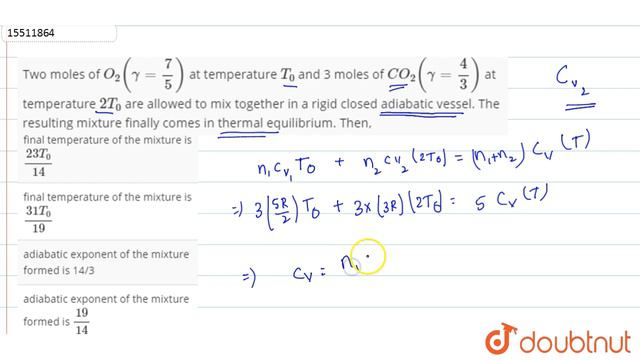 15511864
Two moles of O₂(γ = 7/5) at temperature T₀ and 3 moles of CO₂(γ = 4/3) at
temperature 2T₀ are allowed to mix together in a rigid closed adiabatic vessel. The
resulting mixture finally comes in thermal equilibrium. Then,
final temperature of the mixture is
23T₀/14
final temperature of the mixture is
31T₀/19
adiabatic exponent of the mixture
formed is 14/3
adiabatic exponent of the mixture
formed is 19/14
C_v₂
n₁ C_v₁ T₀ + n₂ C_v₂ (2T₀) = (n₁+n₂) C_v (T)
⇒ 3(5R/2) T₀ + 3×(3R)(2T₀) = 5 C_v (T)
⇒ C_v = n₁
doubtnut